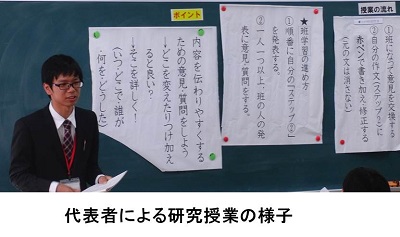 授業の流れ
①班になって意見を交換する
②自分の作文(ステップ2)に
赤ペンで書き加え、修正する
(元の文は消さない)
★班学習の進め方
①順番に自分の「ステップ②」
を発表する。
②一人一つ以上、班の人の発
表に意見・質問をする。
ポイント
内容を伝わりやすくする
ための意見・質問をしよう
→どこを変えたりつけ加え
ると良い?
→そこを詳しく!
(いつ・どこで・誰が
・何を・どうした)
代表者による研究授業の様子